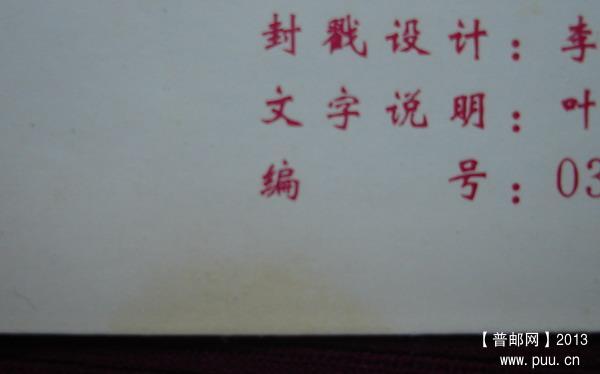 封戳设计：李
文字说明：叶
编 号：03
【普邮网】2013
www.puu.cn